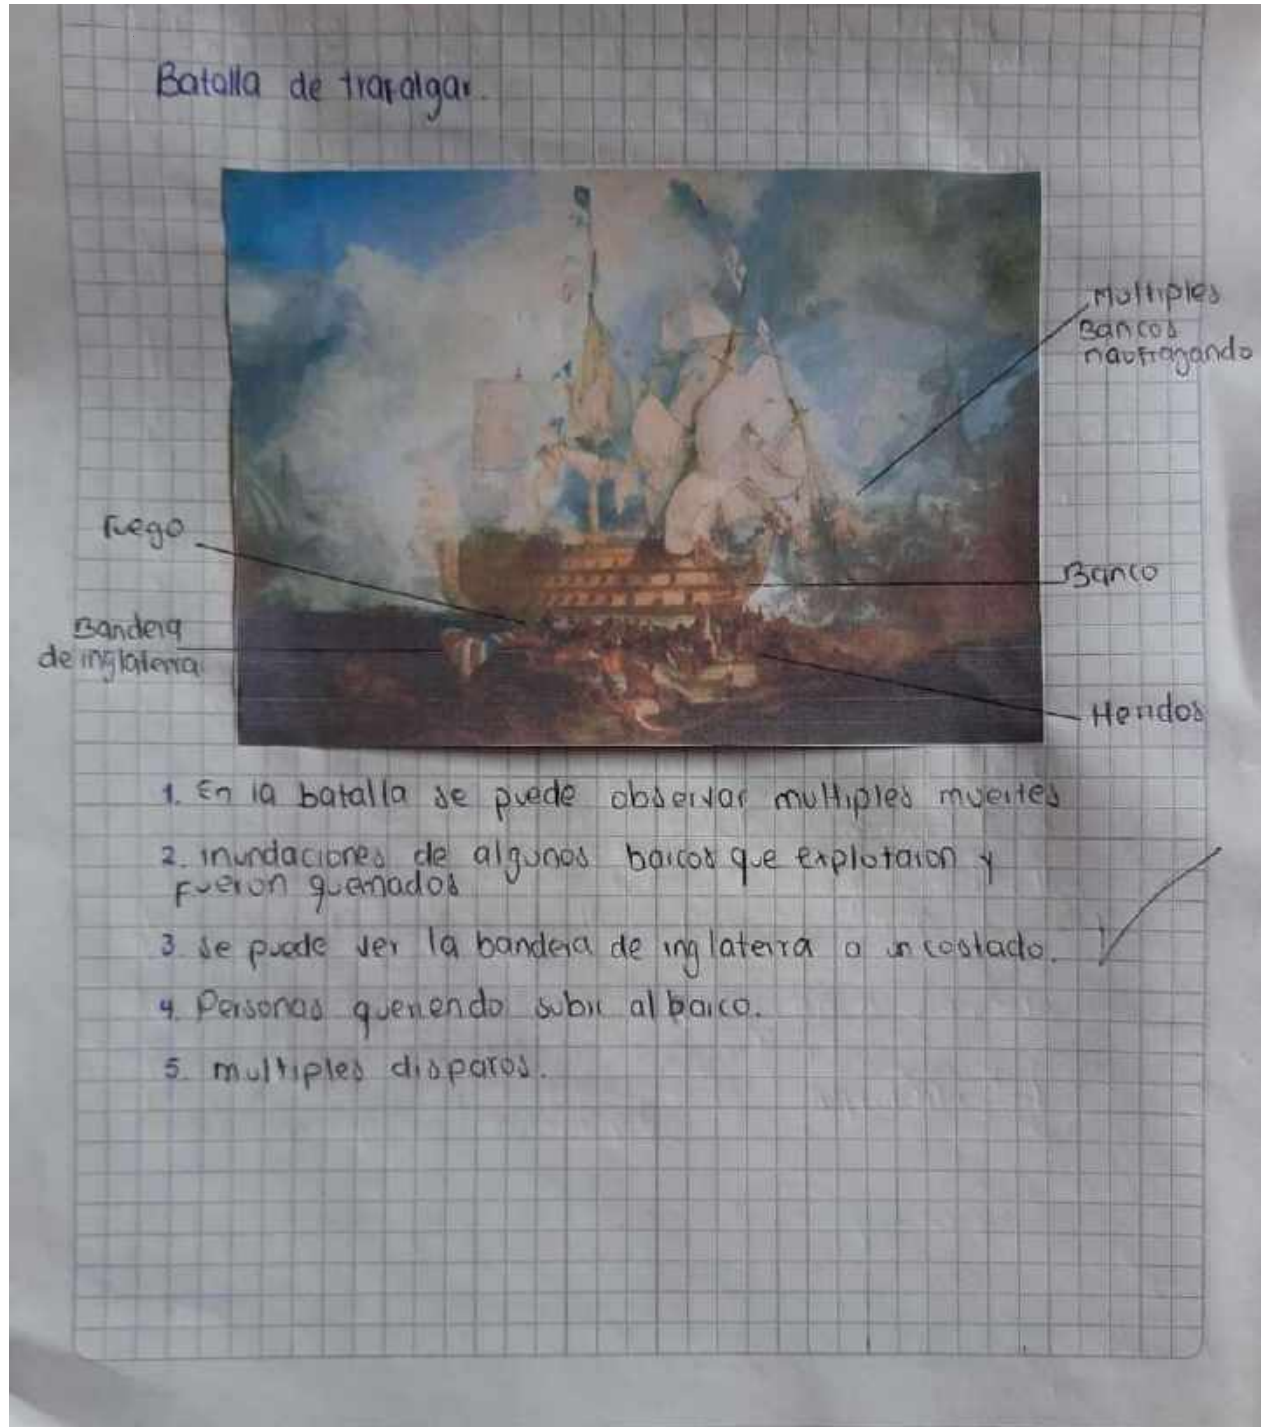 Batalla de trafalgar.
Multiples
Bancos
naufragando
Fuego
Banco
Bandera
de inglaterra
Heridos
1. En la batalla se puede observar multiples muertes
2. inundaciones de algunos barcos que explotaron y
fueron quemados
3. se puede ver la bandera de inglaterra a un costado.
4. Personas queriendo subir al barco.
5. multiples disparos.